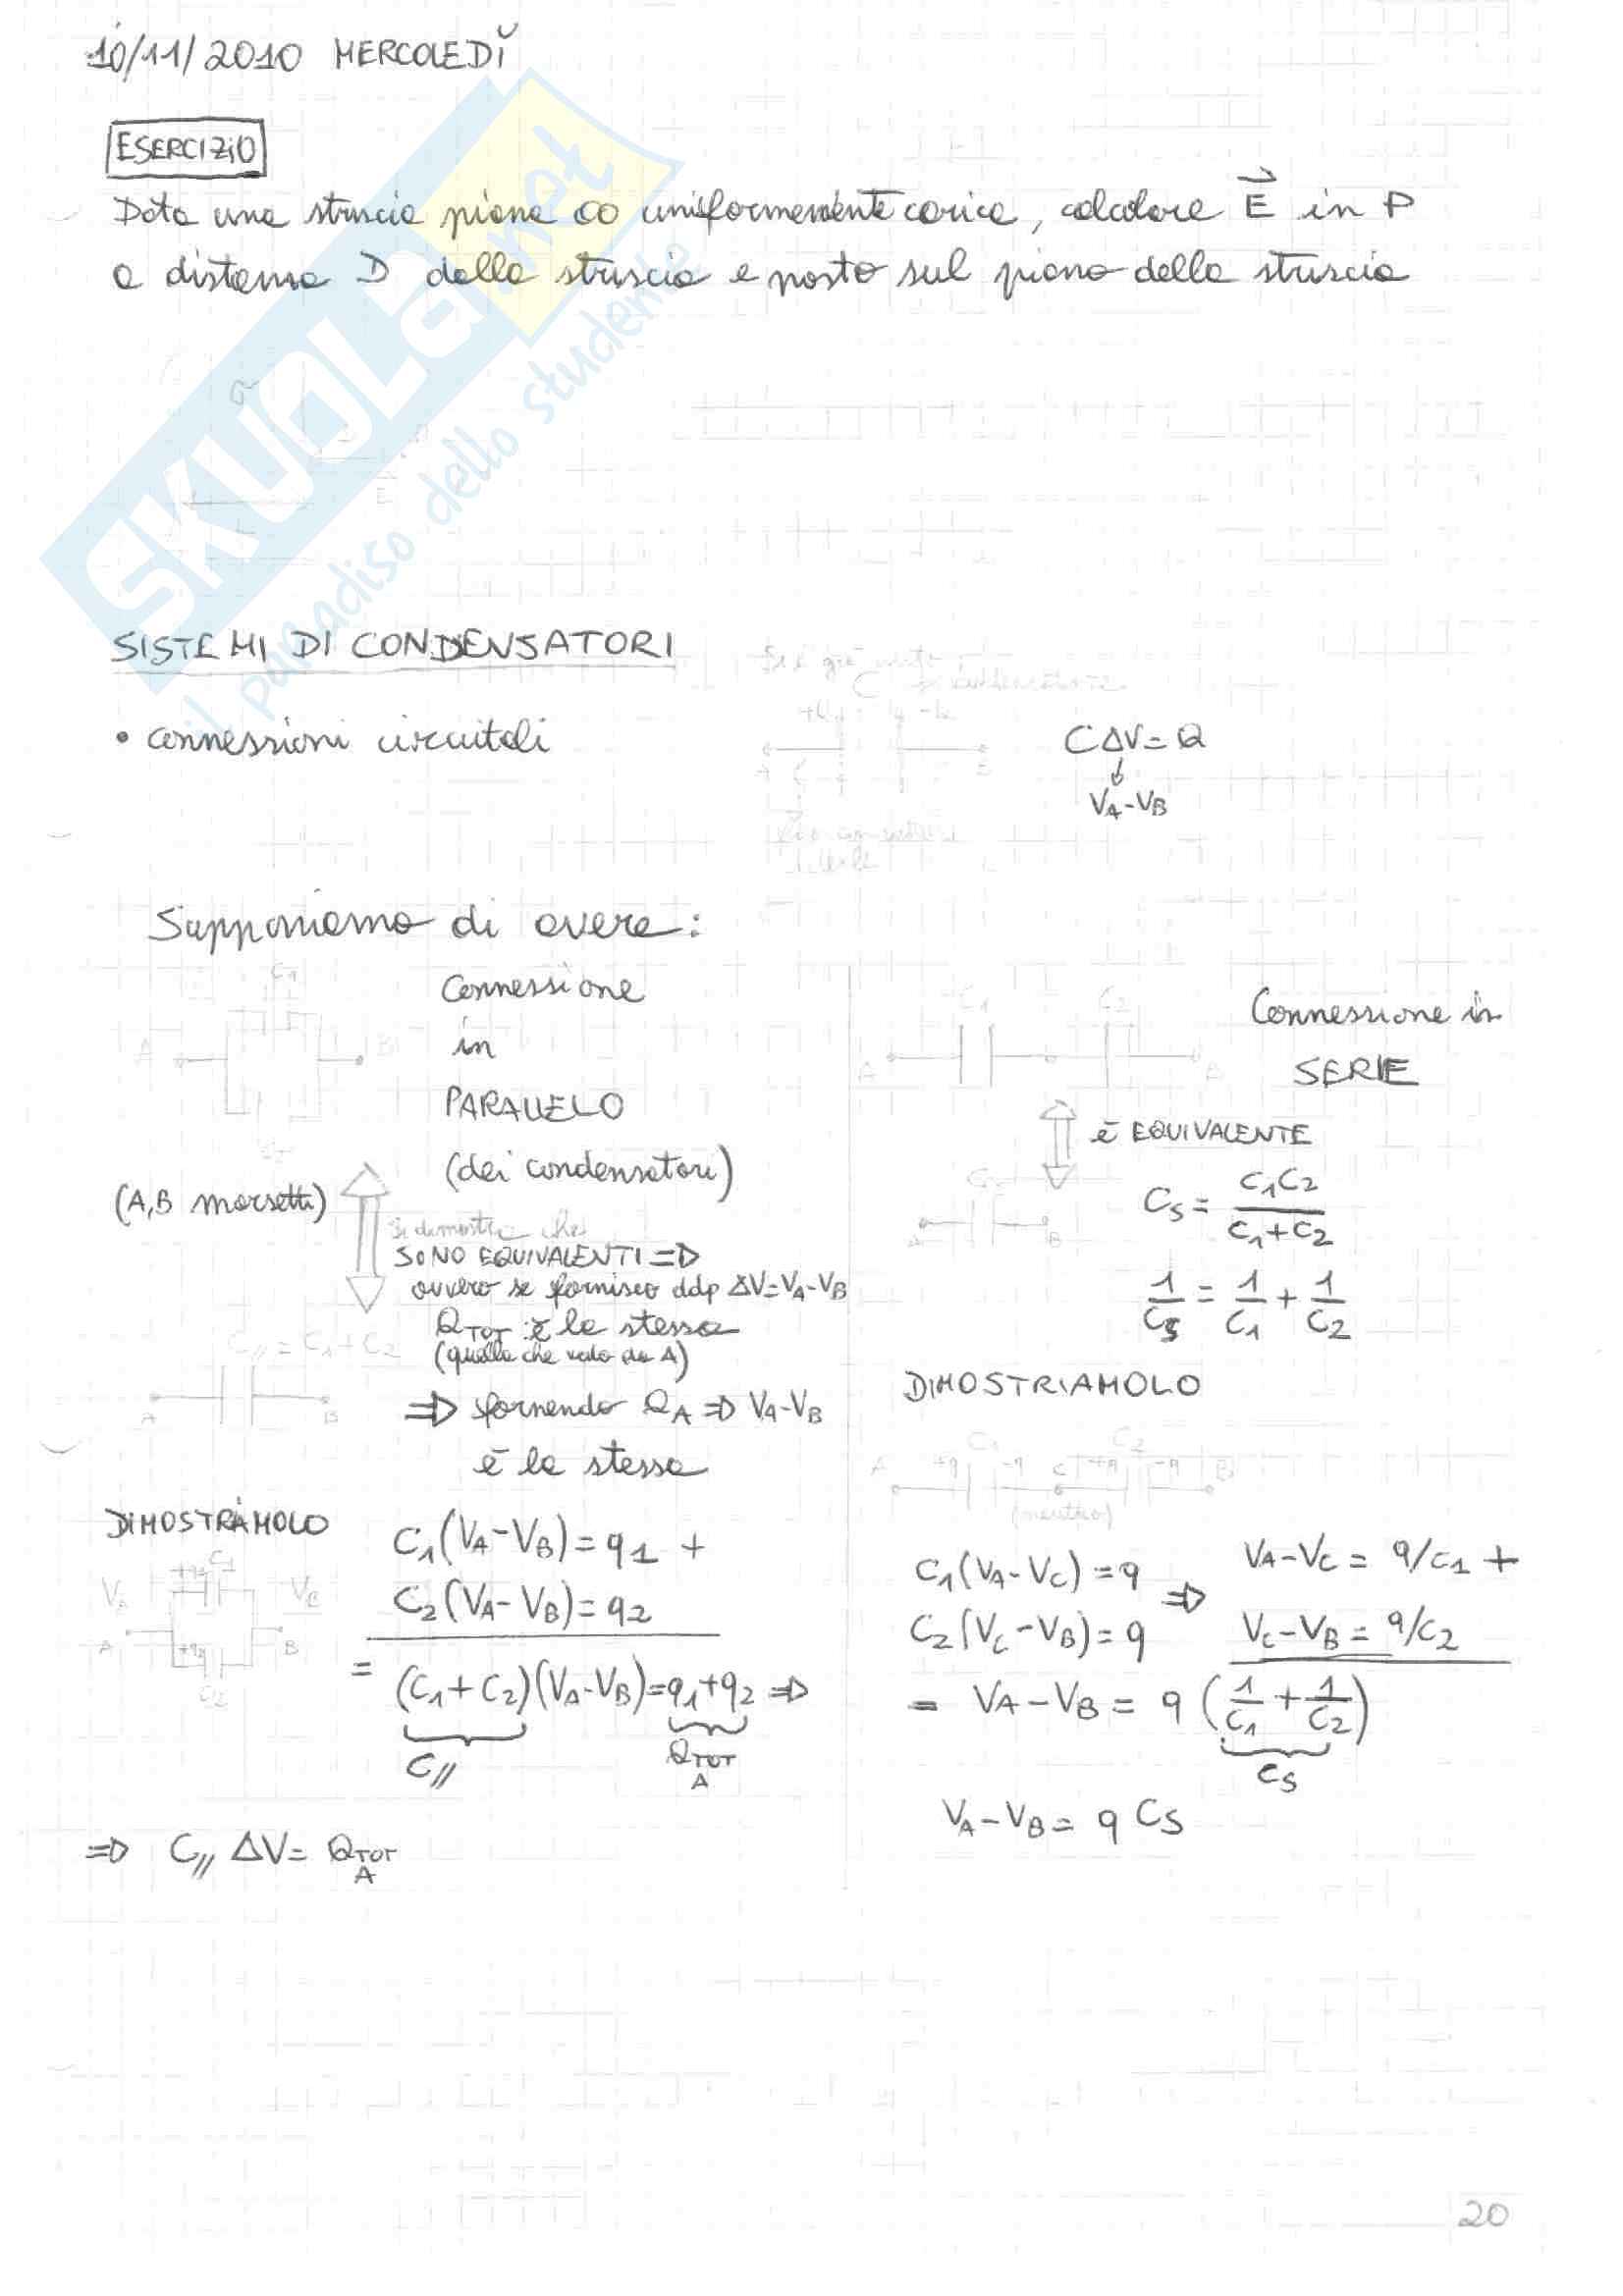 10/11/2010 MERCOLEDÌ
ESERCIZIO
Data una striscia piana ∞ uniformemente carica, calcolare E⃗ in P
a distanza D dalla striscia e posto sul piano della striscia
σ
SKUOLA.net
il paradiso dello studente
SISTEMI DI CONDENSATORI
• connessioni circuitali
CΔV = Q
↓
VA-VB
Supponiamo di avere:
C1
A
B
Connessione
in
PARALLELO
(dei condensatori)
(A,B morsetti)
Si dimostra che
SONO EQUIVALENTI ⇒
ovvero se fornisco ddp ΔV=VA-VB
QTOT è la stessa
(quella che vedo da A)
C// = C1+C2
A
B
⇒ fornendo QA ⇒ VA-VB
è la stessa
DIMOSTRIAMOLO
C1
VA
VB
A
+q2
B
C2
C1(VA-VB) = q1 +
C2(VA-VB) = q2
= (C1+C2)(VA-VB) = q1+q2 ⇒
C//
QTOT
A
⇒ C// ΔV = QTOT
A
C1
C2
A
Connessione in
SERIE
è EQUIVALENTE
A
B
CS = C1C2 / C1+C2
1/CS = 1/C1 + 1/C2
DIMOSTRIAMOLO
C1
C2
A +q -q C +q -q B
(neutro)
C1(VA-VC) = q
C2(VC-VB) = q
⇒
VA-VC = q/C1 +
VC-VB = q/C2
= VA-VB = q (1/C1 + 1/C2)
CS
VA-VB = q CS
20